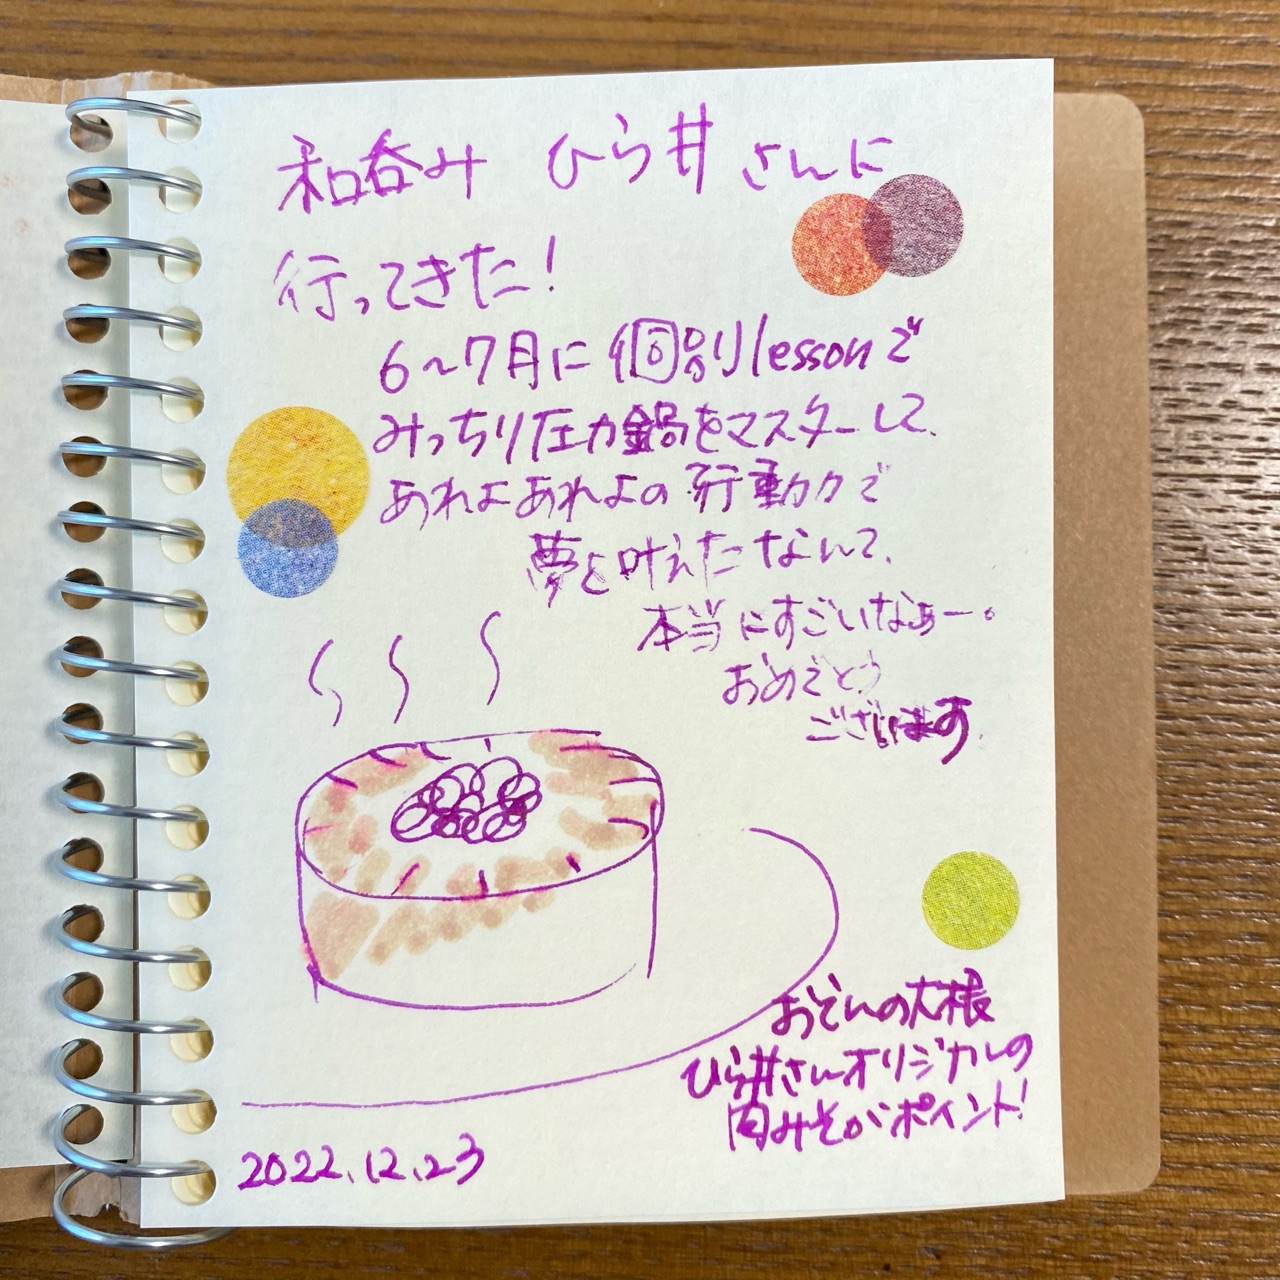 和呑み ひら井さんに
行ってきた!
6〜7月に個別lessonで
みっちり圧力鍋をマスターして、
あれよあれよの行動力で
夢を叶えたなんて、
本当にすごいなぁー。
おめでとう
ございます
おでんの大根
ひら井さんオリジナルの
肉みそがポイント!
2022.12.23